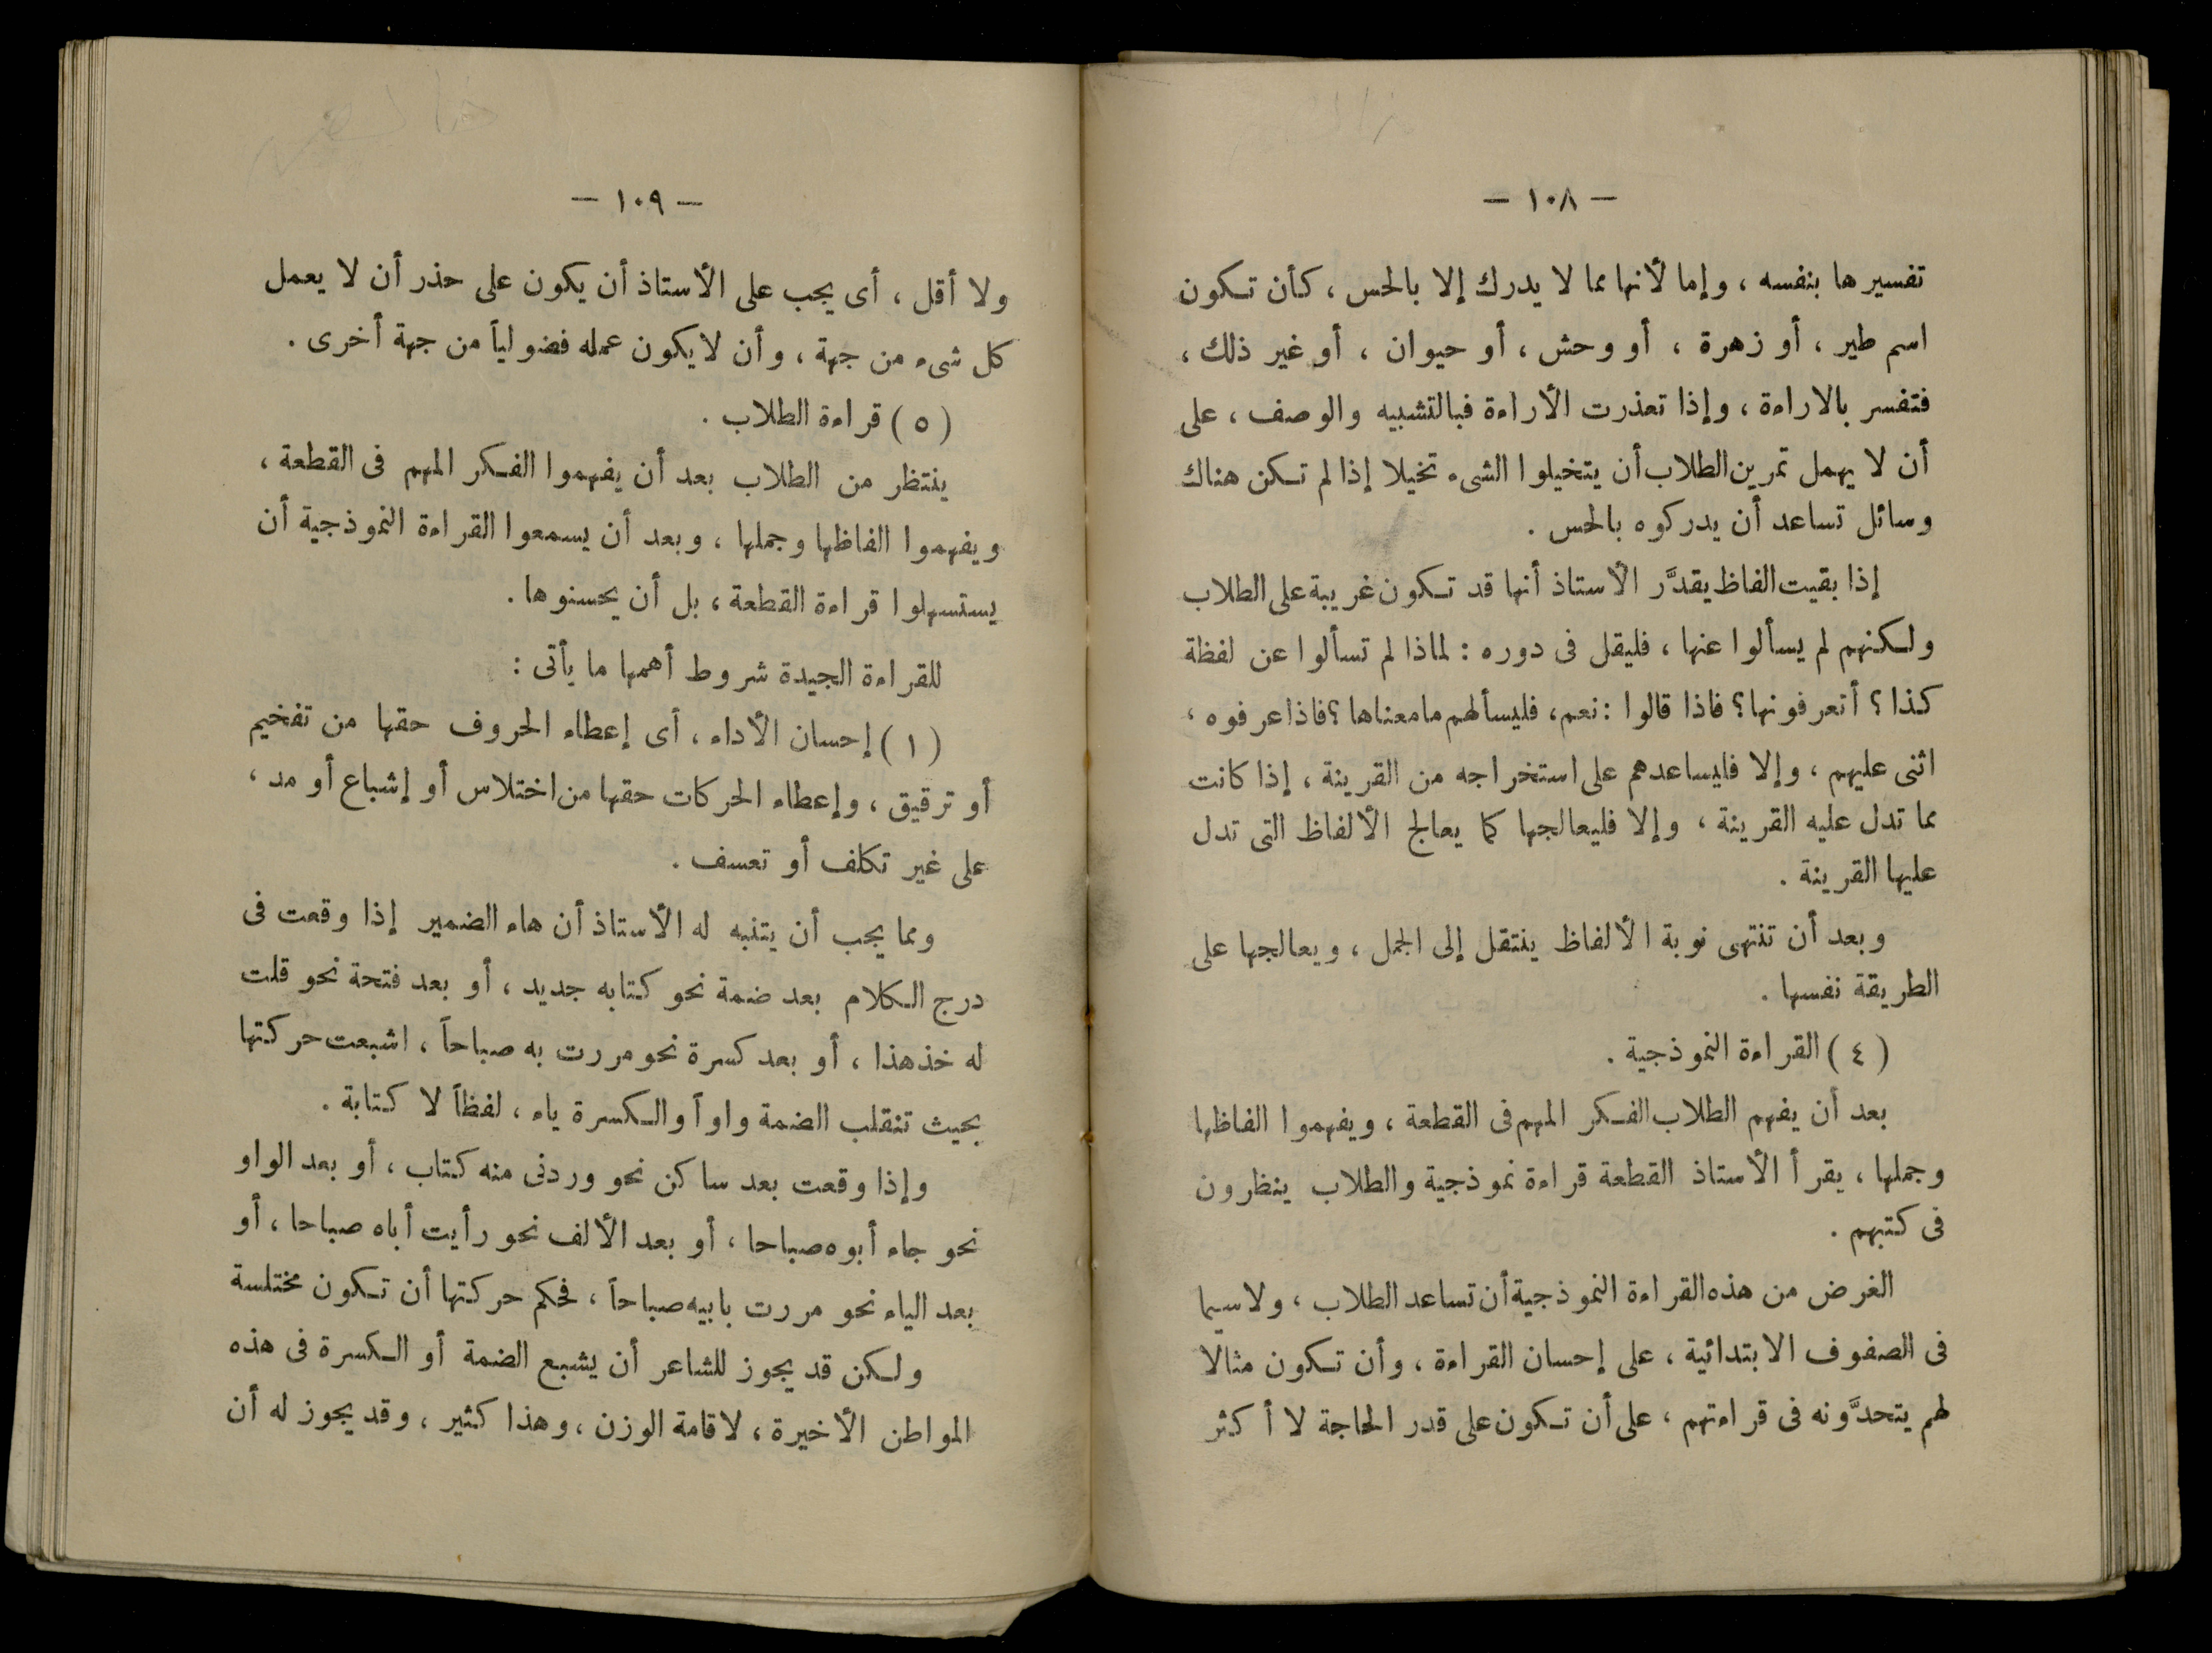 — ١٠٨ —
تفسيرها بنفسه ، وإما لأنها مما لا يدرك إلا بالحس ، كأن تكون
اسم طير ، أو زهرة ، أو وحش ، أو حيوان ، أو غير ذلك ،
فتفسر بالاراءة ، وإذا تعذرت الأراءة فبالتشبيه والوصف ، على
أن لا يهمل تمرين الطلاب أن يتخيلوا الشىء تخيلا إذا لم تكن هناك
وسائل تساعد أن يدركوه بالحس .
إذا بقيت الفاظ يقدَّر الأستاذ أنها قد تكون غريبة على الطلاب
ولكنهم لم يسألوا عنها ، فليقل فى دوره : لماذا لم تسألوا عن لفظة
كذا ؟ أتعرفونها ؟ فاذا قالوا : نعم ، فليسألهم ما معناها ؟ فاذا عرفوه ،
اثنى عليهم ، وإلا فليساعدهم على استخراجه من القرينة ، إذا كانت
مما تدل عليه القرينة ، وإلا فليعالجها كما يعالج الألفاظ التى تدل
عليها القرينة .
وبعد أن تنتهى نوبة الألفاظ ينتقل إلى الجمل ، ويعالجها على
الطريقة نفسها .
( ٤ ) القراءة النموذجية .
بعد أن يفهم الطلاب الفكر المهم فى القطعة ، ويفهموا الفاظها
وجملها ، يقرأ الأستاذ القطعة قراءة نموذجية والطلاب ينظرون
فى كتبهم .
الغرض من هذه القراءة النموذجية أن تساعد الطلاب ، ولا سيما
فى الصفوف الابتدائية ، على إحسان القراءة ، وأن تكون مثالا
لهم يتحدَّونه فى قراءتهم ، على أن تكون على قدر الحاجة لا أكثر
— ١٠٩ —
ولا أقل ، أى يجب على الأستاذ أن يكون على حذر أن لا يعمل
كل شىء من جهة ، وأن لا يكون عمله فضولياً من جهة أخرى .
( ٥ ) قراءة الطلاب .
ينتظر من الطلاب بعد أن يفهموا الفكر المهم فى القطعة ،
ويفهموا الفاظها وجملها ، وبعد أن يسمعوا القراءة النموذجية أن
يستسهلوا قراءة القطعة ، بل أن يحسنوها .
للقراءة الجيدة شروط أهمها ما يأتى :
( ١ ) إحسان الأداء ، أى إعطاء الحروف حقها من تفخيم
أو ترقيق ، وإعطاء الحركات حقها من اختلاس أو إشباع أو مد ،
على غير تكلف أو تعسف .
ومما يجب أن يتنبه له الأستاذ أن هاء الضمير إذا وقعت فى
درج الكلام بعد ضمة نحو كتابه جديد ، أو بعد فتحة نحو قلت
له خذ هذا ، أو بعد كسرة نحو مررت به صباحاً ، اشبعت حركتها
بحيث تنقلب الضمة واواً والكسرة ياء ، لفظاً لا كتابة .
وإذا وقعت بعد ساكن نحو وردنى منه كتاب ، أو بعد الواو
نحو جاء أبوه صباحا ، أو بعد الألف نحو رأيت أباه صباحا ، أو
بعد الياء نحو مررت بابيه صباحاً ، فحكم حركتها أن تكون مختلسة
ولكن قد يجوز للشاعر أن يشبع الضمة أو الكسرة فى هذه
المواطن الأخيرة ، لاقامة الوزن ، وهذا كثير ، وقد يجوز له أن